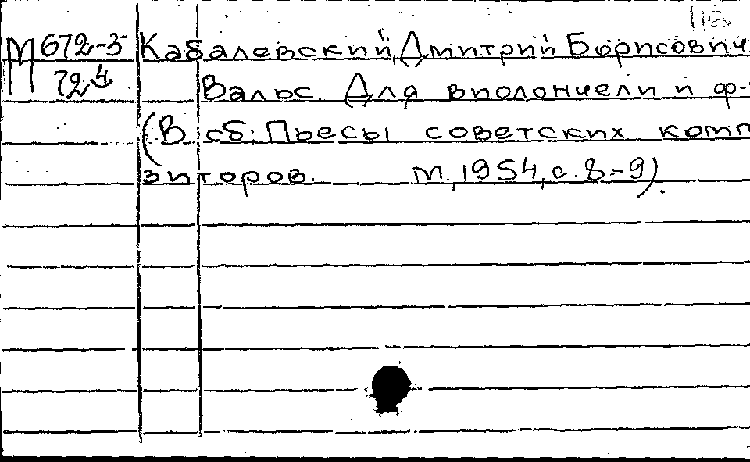 М 672-3 Кабалевский, Дмитрий Борисович
72 Вальс. Для виолончели и ф-
(В сб: Пьесы советских комп
зиторов. М, 1954, с. 8-9).